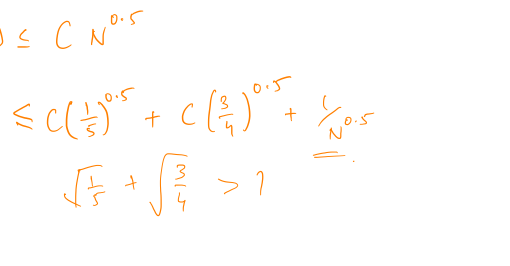 ) ≤ C N^0.5
≤ C(1/5)^0.5 + C(3/4)^0.5 + 1/N^0.5
√(1/5) + √(3/4) > 1